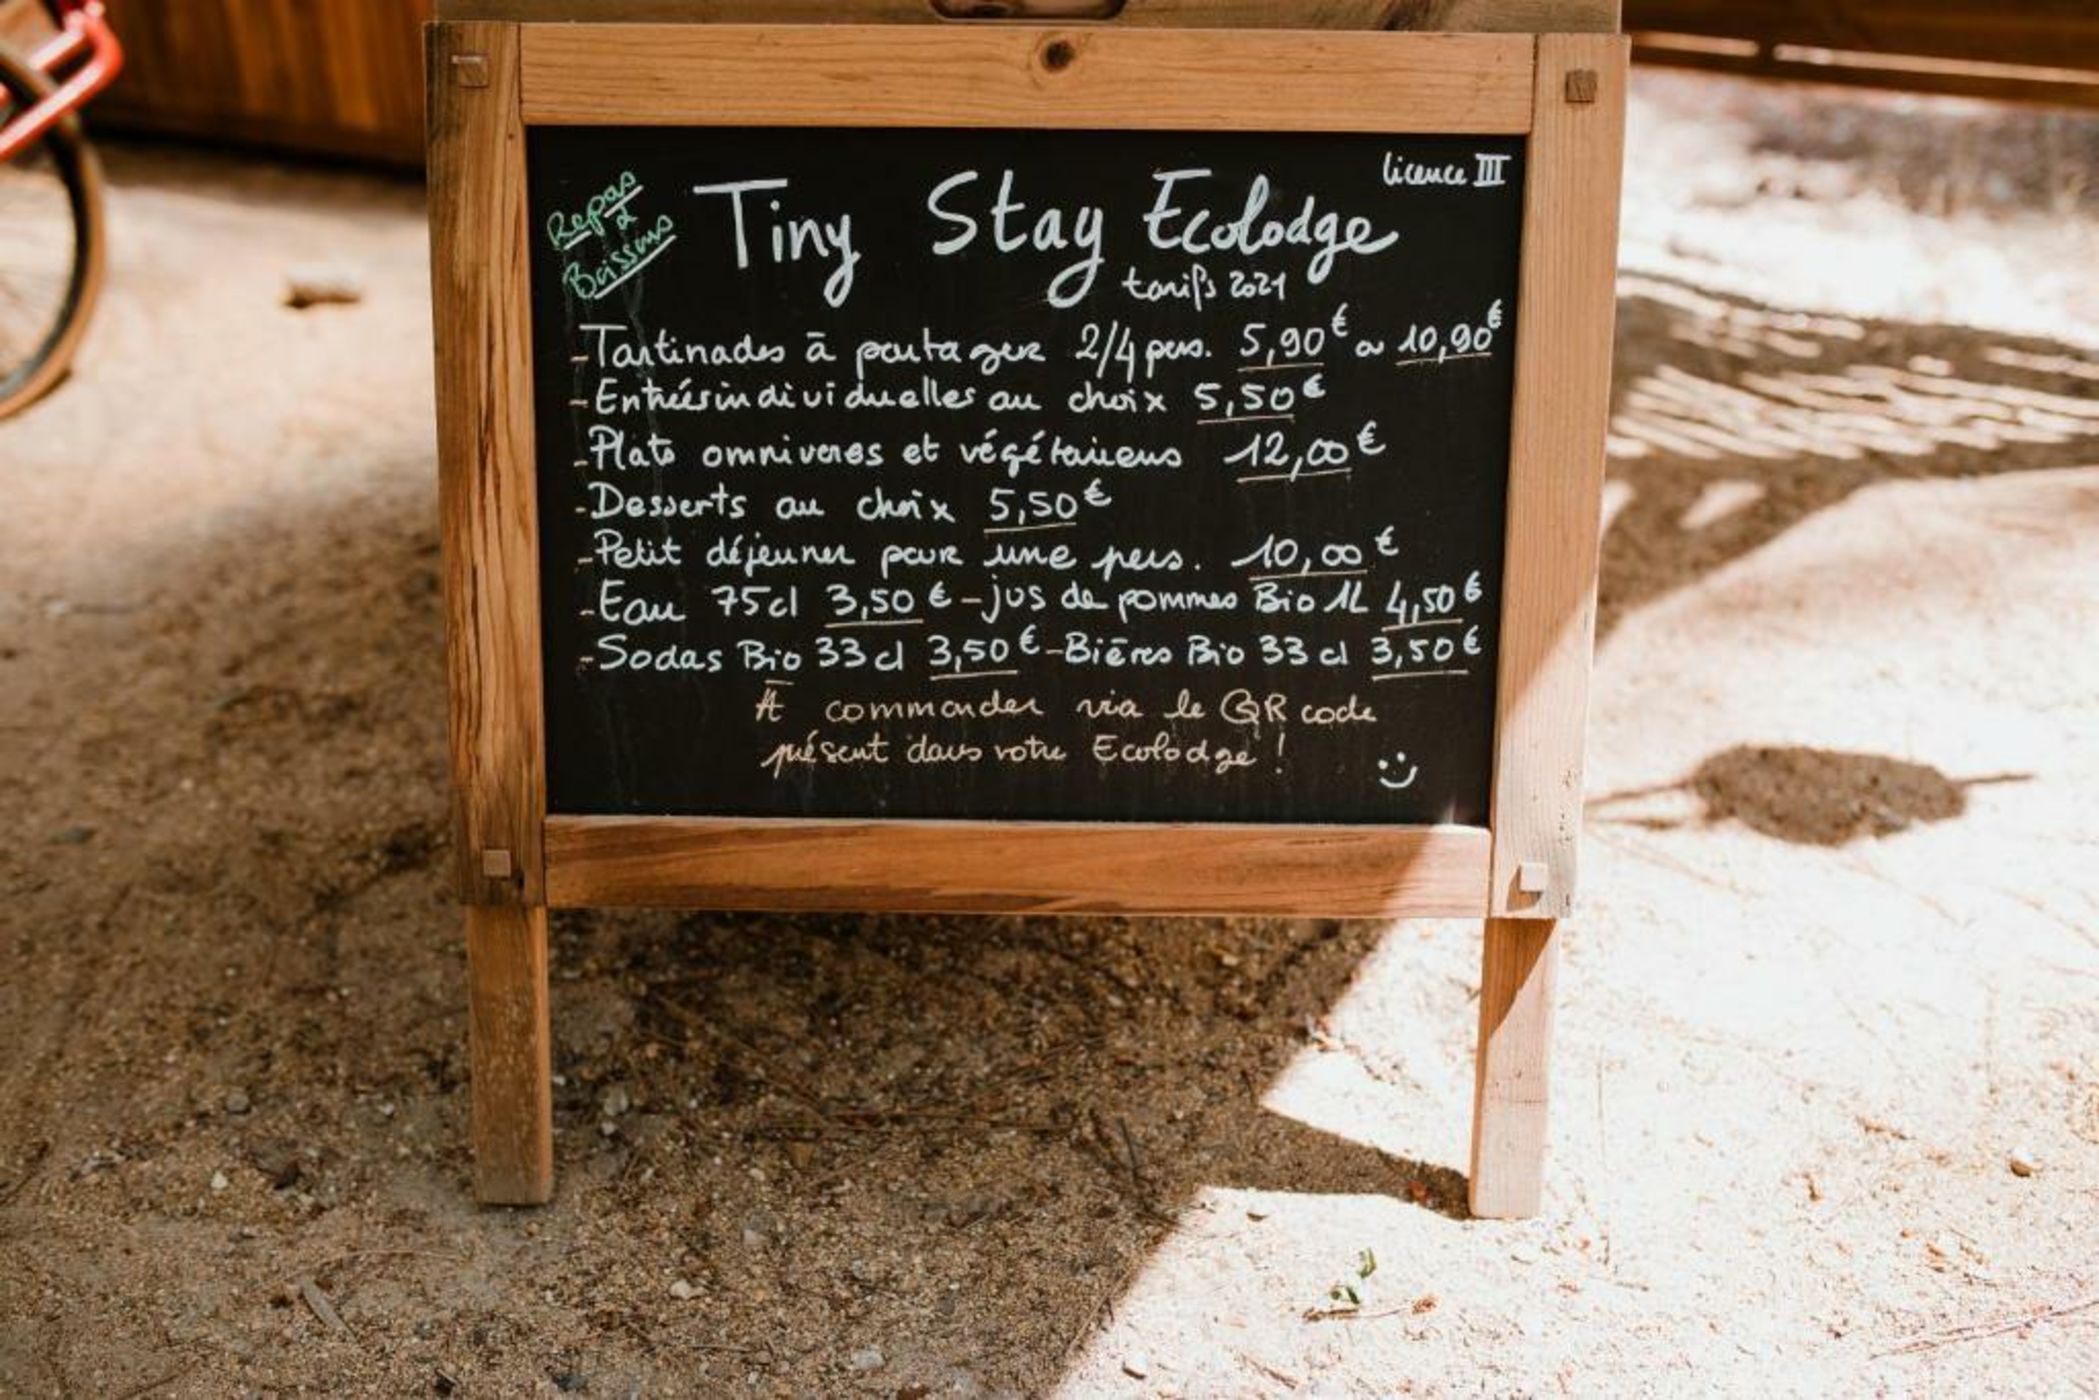 Repas
&
Boissons
Tiny Stay Ecolodge
Licence III
tarifs 2021
-Tartinades à partager 2/4 pers. 5,90€ ou 10,90€
-Entrées individuelles au choix 5,50€
-Plats omnivores et végétariens 12,00€
-Desserts au choix 5,50€
-Petit déjeuner pour une pers. 10,00€
-Eau 75cl 3,50€-jus de pommes Bio 1L 4,50€
-Sodas Bio 33cl 3,50€-Bières Bio 33cl 3,50€
À commander via le QR code
présent dans votre Ecolodge !